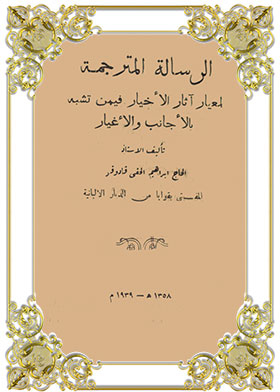 الرسالة المترجمة
لمعيار آثار الأخيار فيمن تشبه
بالأجانب والأغيار
تأليف الاستاذ
الحاج ابراهيم الحقي قادوقر
المفتي بقوايا من الديار الالبانية
١٣٥٨ هـ — ١٩٣٩ م